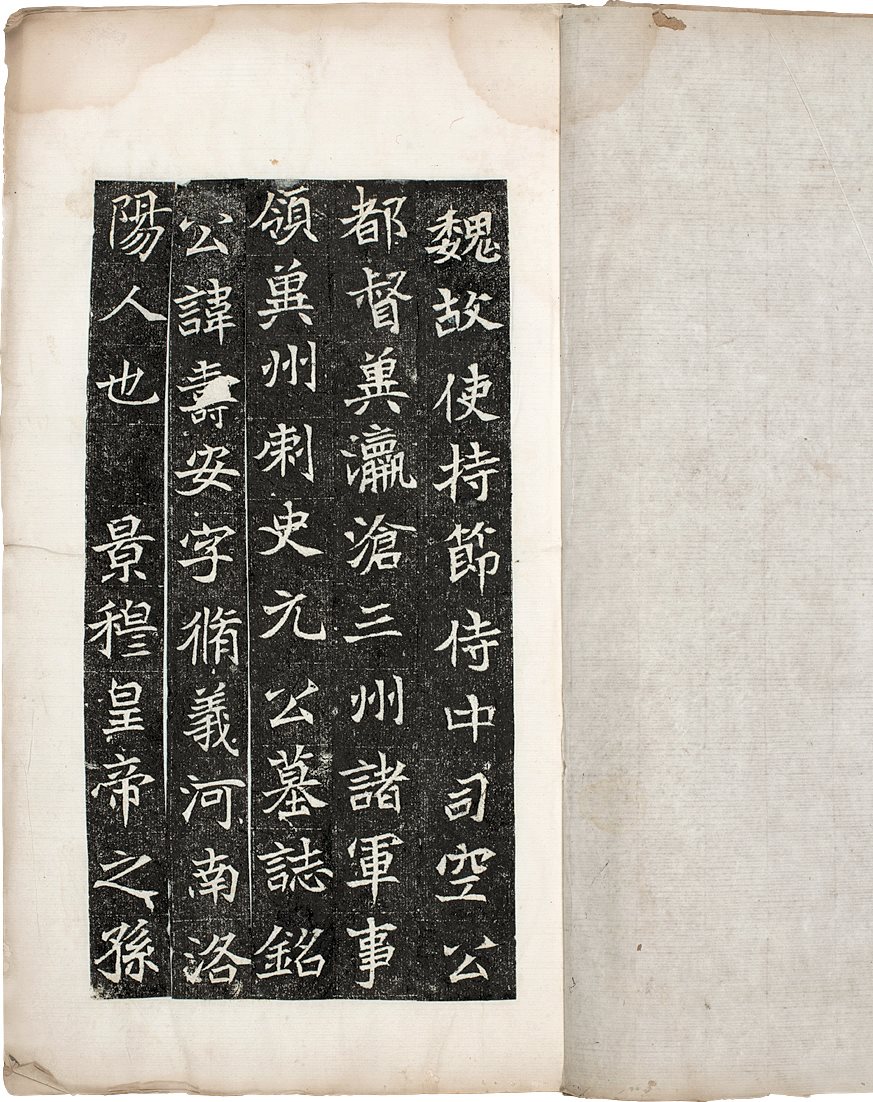 魏故使持節侍中司空公
都督冀瀛滄三州諸軍事
領冀州刺史元公墓誌銘
公諱壽安字脩義河南洛
陽人也　景穆皇帝之孫